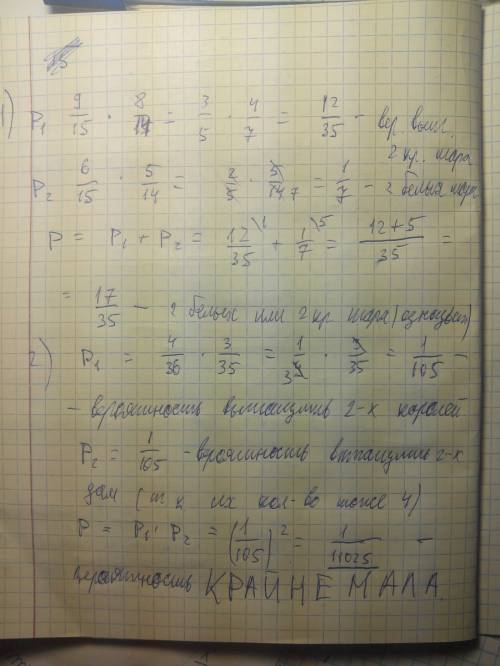 1) P₁ 9/15 · 8/14 = 3/5 · 4/7 = 12/35 - вер. выт.
2 кр. шара
P₂ 6/15 · 5/14 = 2/5 · 5/14 7 = 1/7 - 2 белых шара
P = P₁ + P₂ = 12/35 \1 + 1/7 \5 = 12+5/35 =
= 17/35 - 2 белых или 2 кр шара (одноцвет)
2) P₁ = 4/36 · 3/35 = 1/9 3 · 3/35 = 1/105 -
- вероятность вытянуть 2-х королей
P₂ = 1/105 - вероятность вытянуть 2-х
дам (т к их кол-во тоже 4)
P = P₁ · P₂ = (1/105)² = 1/11025 -
вероятность КРАЙНЕ МАЛА.